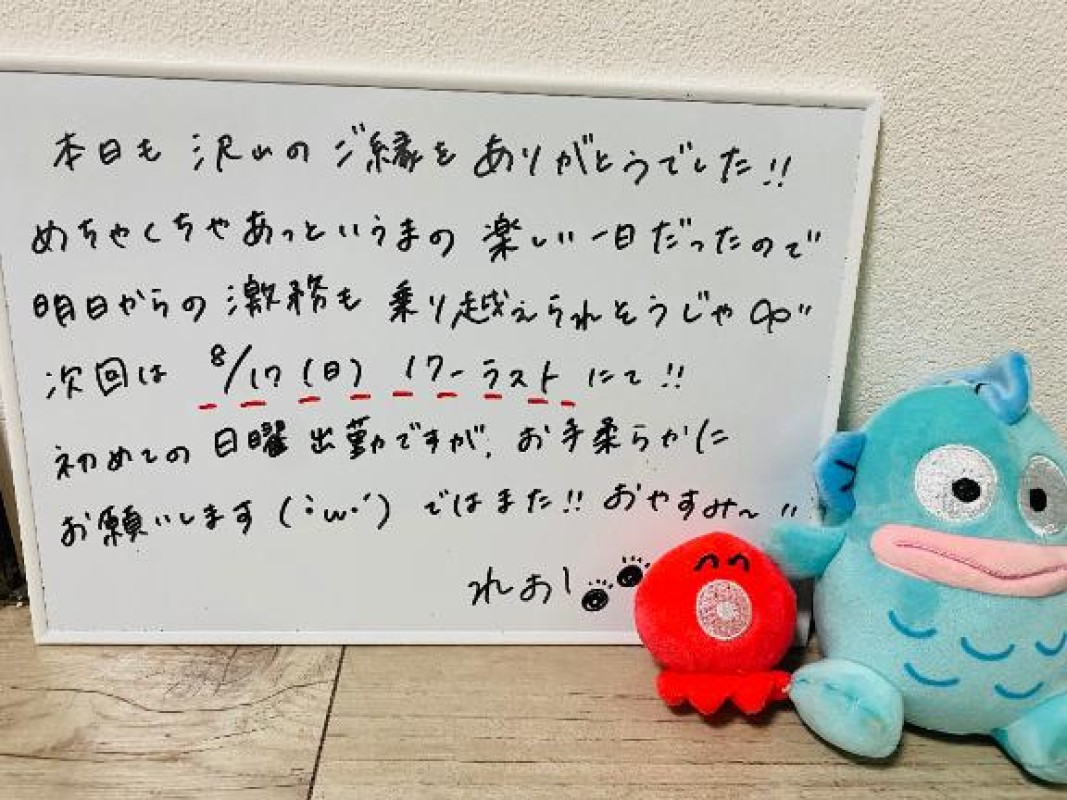 本日も 沢山の ご縁を ありがとうでした!!
めちゃくちゃあっというまの 楽しい一日だったので
明日からの 激務も 乗り越えられそうじゃ
次回は 8/17 (日) 17-ラスト にて!!
初めての 日曜出勤ですが、お手柔らかに
お願いします (˙ω˙) ではまた!! おやすみ〜
れおー